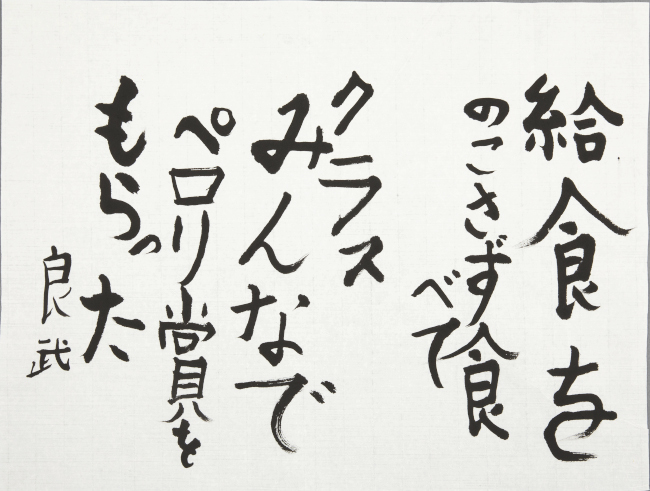 給食を
のこさず食
べて
クラス
みんなで
ペロリ賞を
もらった
良武